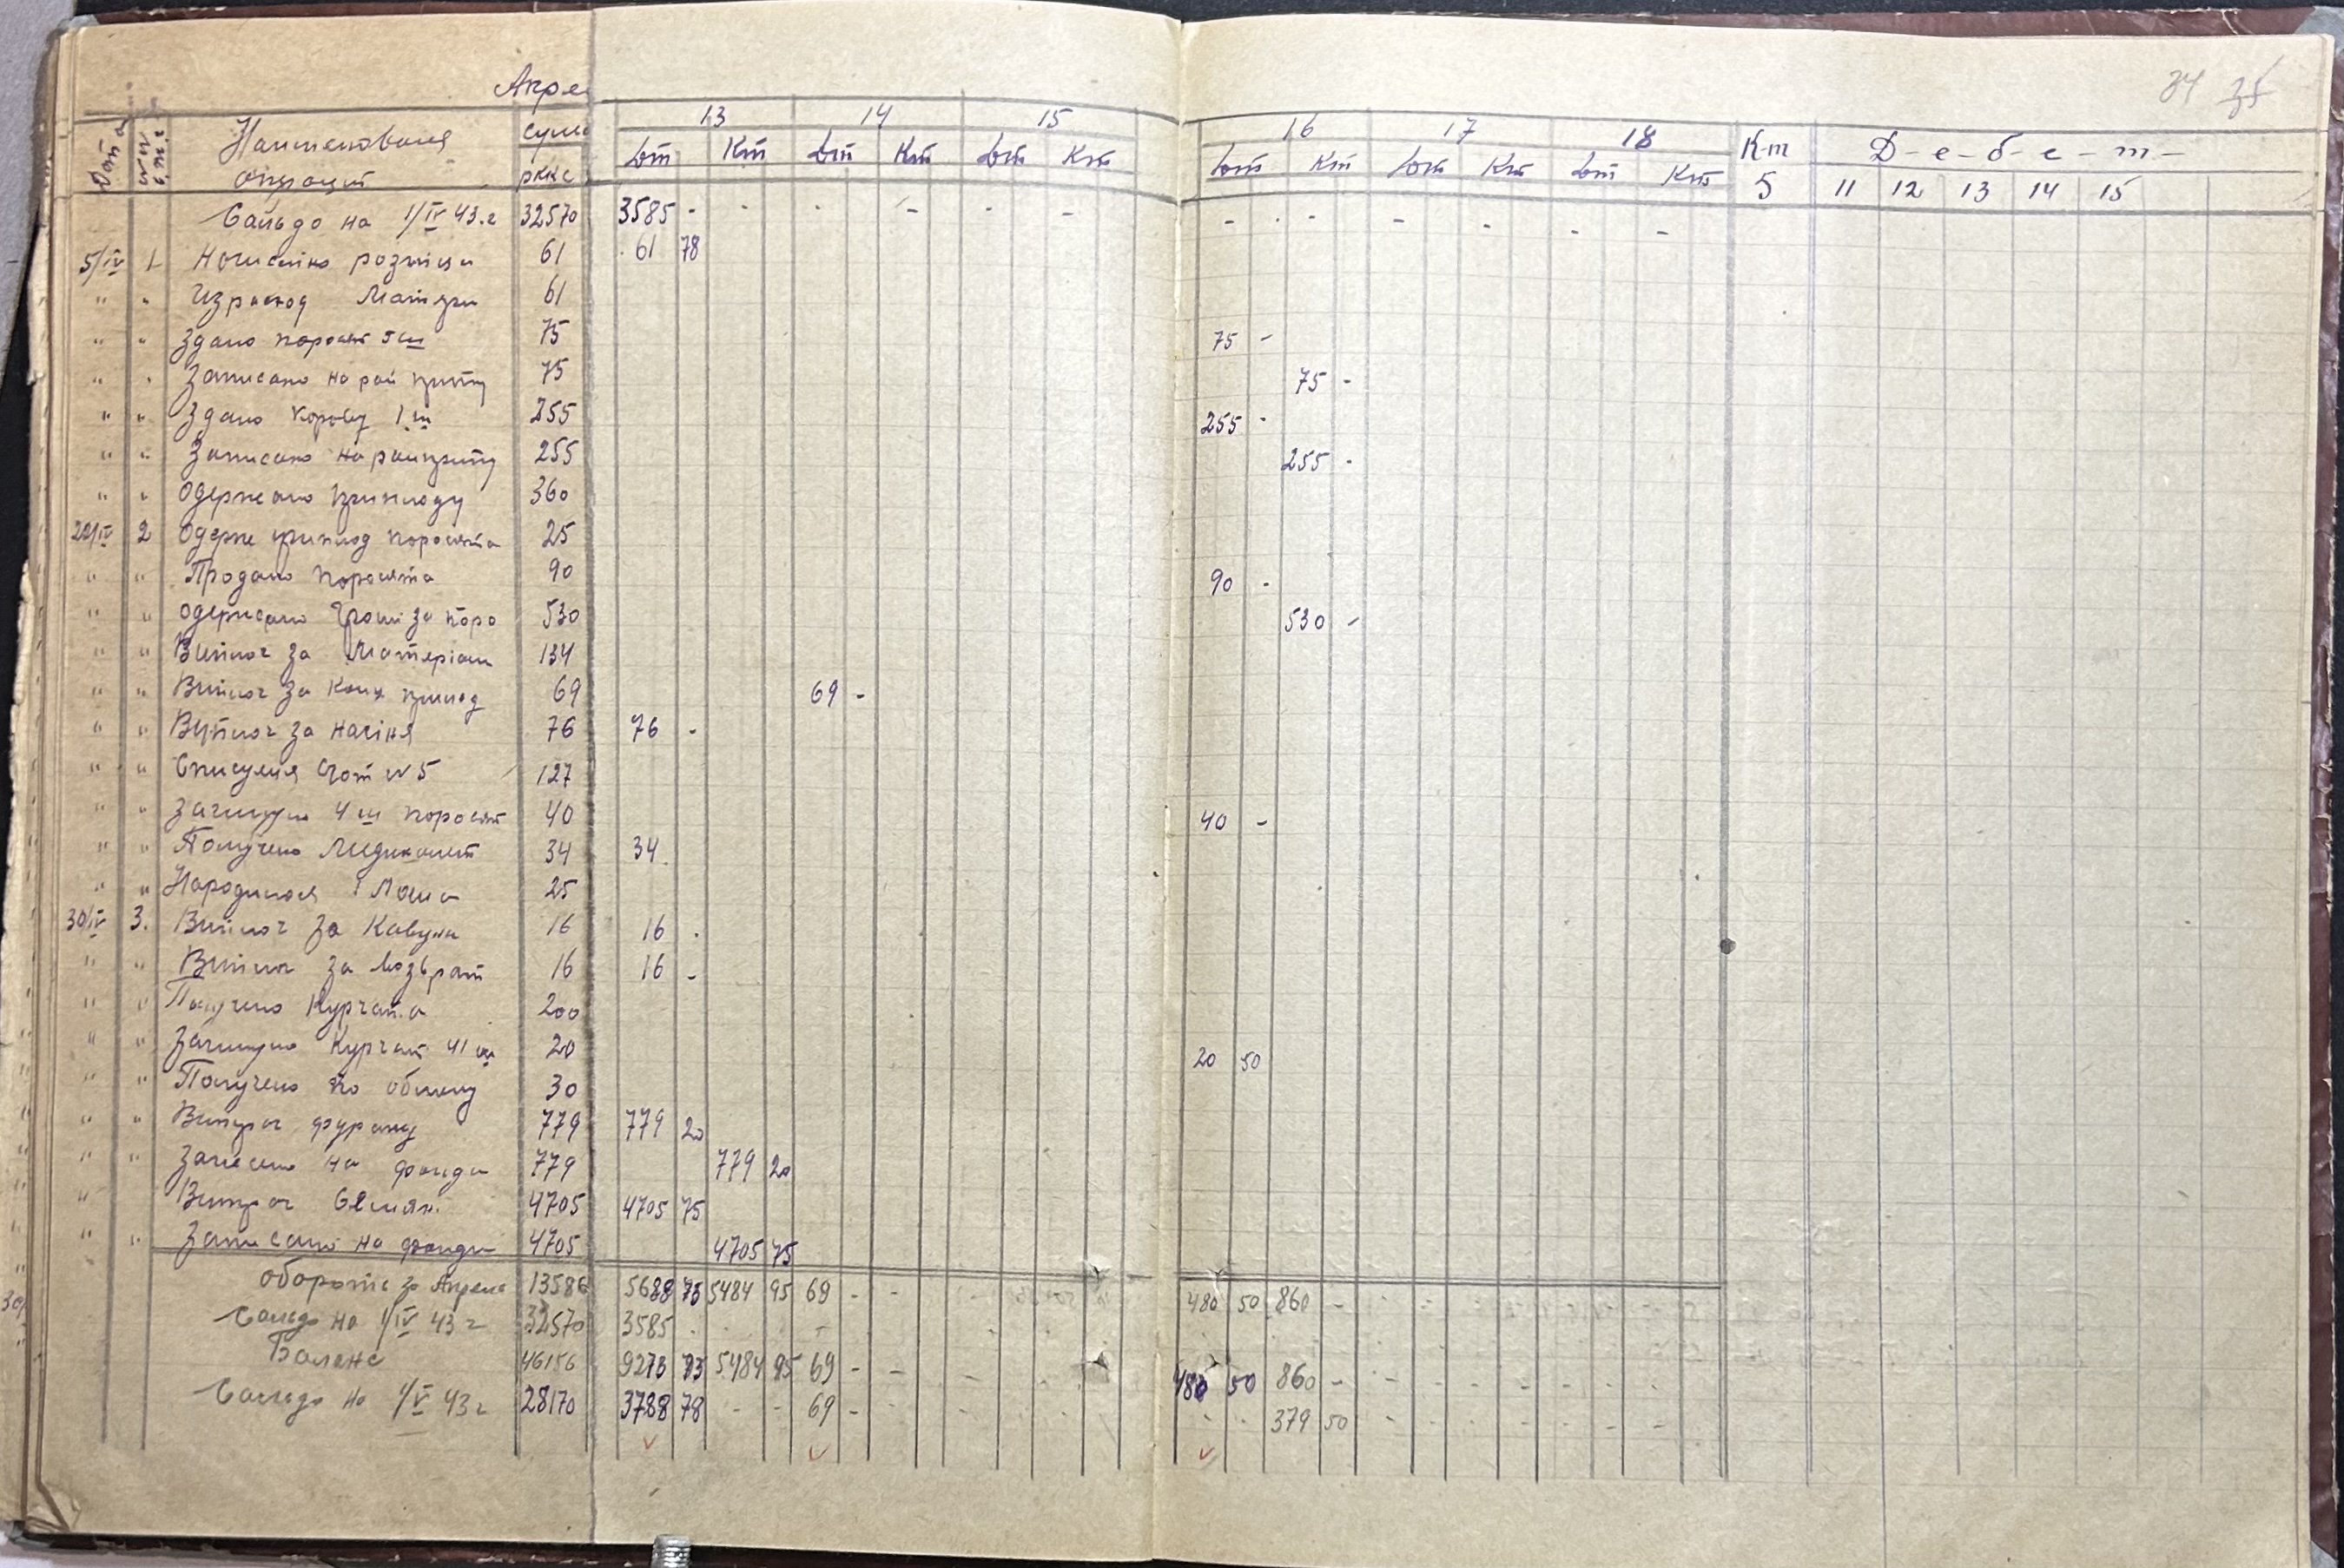 34 35
Апре
Дата №№ Наименования сума 13 14 15 16 17 18 Кт Д-е-б-е-т-
операций Дт Кт Дт Кт Дт Кт Дт Кт Дт Кт Дт Кт 5 11 12 13 14 15
Сальдо на 1/IV 43.г 32570 3585 - - - - - - - - - - - -
5/IV 1 61 61 78
" " 61
" " Здано поросят 5 ш 75 75 -
" " Записано на рай 75 75 -
" " Здано корову 1 ш 255 255 -
" " Записано на 255 255 -
" " Одержано приплоду 360
20/IV 2 Одерже приплод поросята 25
" " Продано поросята 90 90 -
" " Одержано гроши за поро 530 530 -
" " Виплоч за Материали 134
" " Виплоч за 69 69 -
" " Виплоч за насіня 76 76 -
" " Счот № 5 127
" " Загинуло 4 ш поросят 40 40 -
" " Получено 34 34
" " Народилося Лоша 25
30/IV 3. Виплоч за Кавуни 16 16 -
" " Виплоч за Возврат 16 16 -
" " Получено Курчата 200
" " Загинуло Курчат 41 ш 20 20 50
" " Получено по обмену 30
" " Витрач фуражу 779 779 20
" " Занесено на фонди 779 779 20
" " Витрач 4705 4705 75
" " Записано на фонди 4705 4705 75
Обороти за Апрель 13586 5688 73 5484 95 69 - - 480 50 860 -
Сальдо на 1/IV 43 г 32570 3585
Баланс 46156 9273 73 5484 95 69 - - 480 50 860 -
Сальдо на 1/V 43 г 28170 3788 78 - - 69 - 379 50